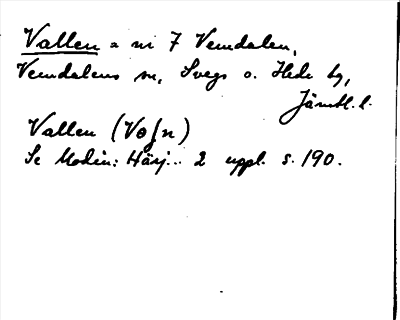 Vallen a nr 7 Vemdalen,
Vemdalens sn, Svegs o. Hede tg,
Jämtl. l.
Vallen (
Se Modin: Härj... 2 uppl. s. 190.